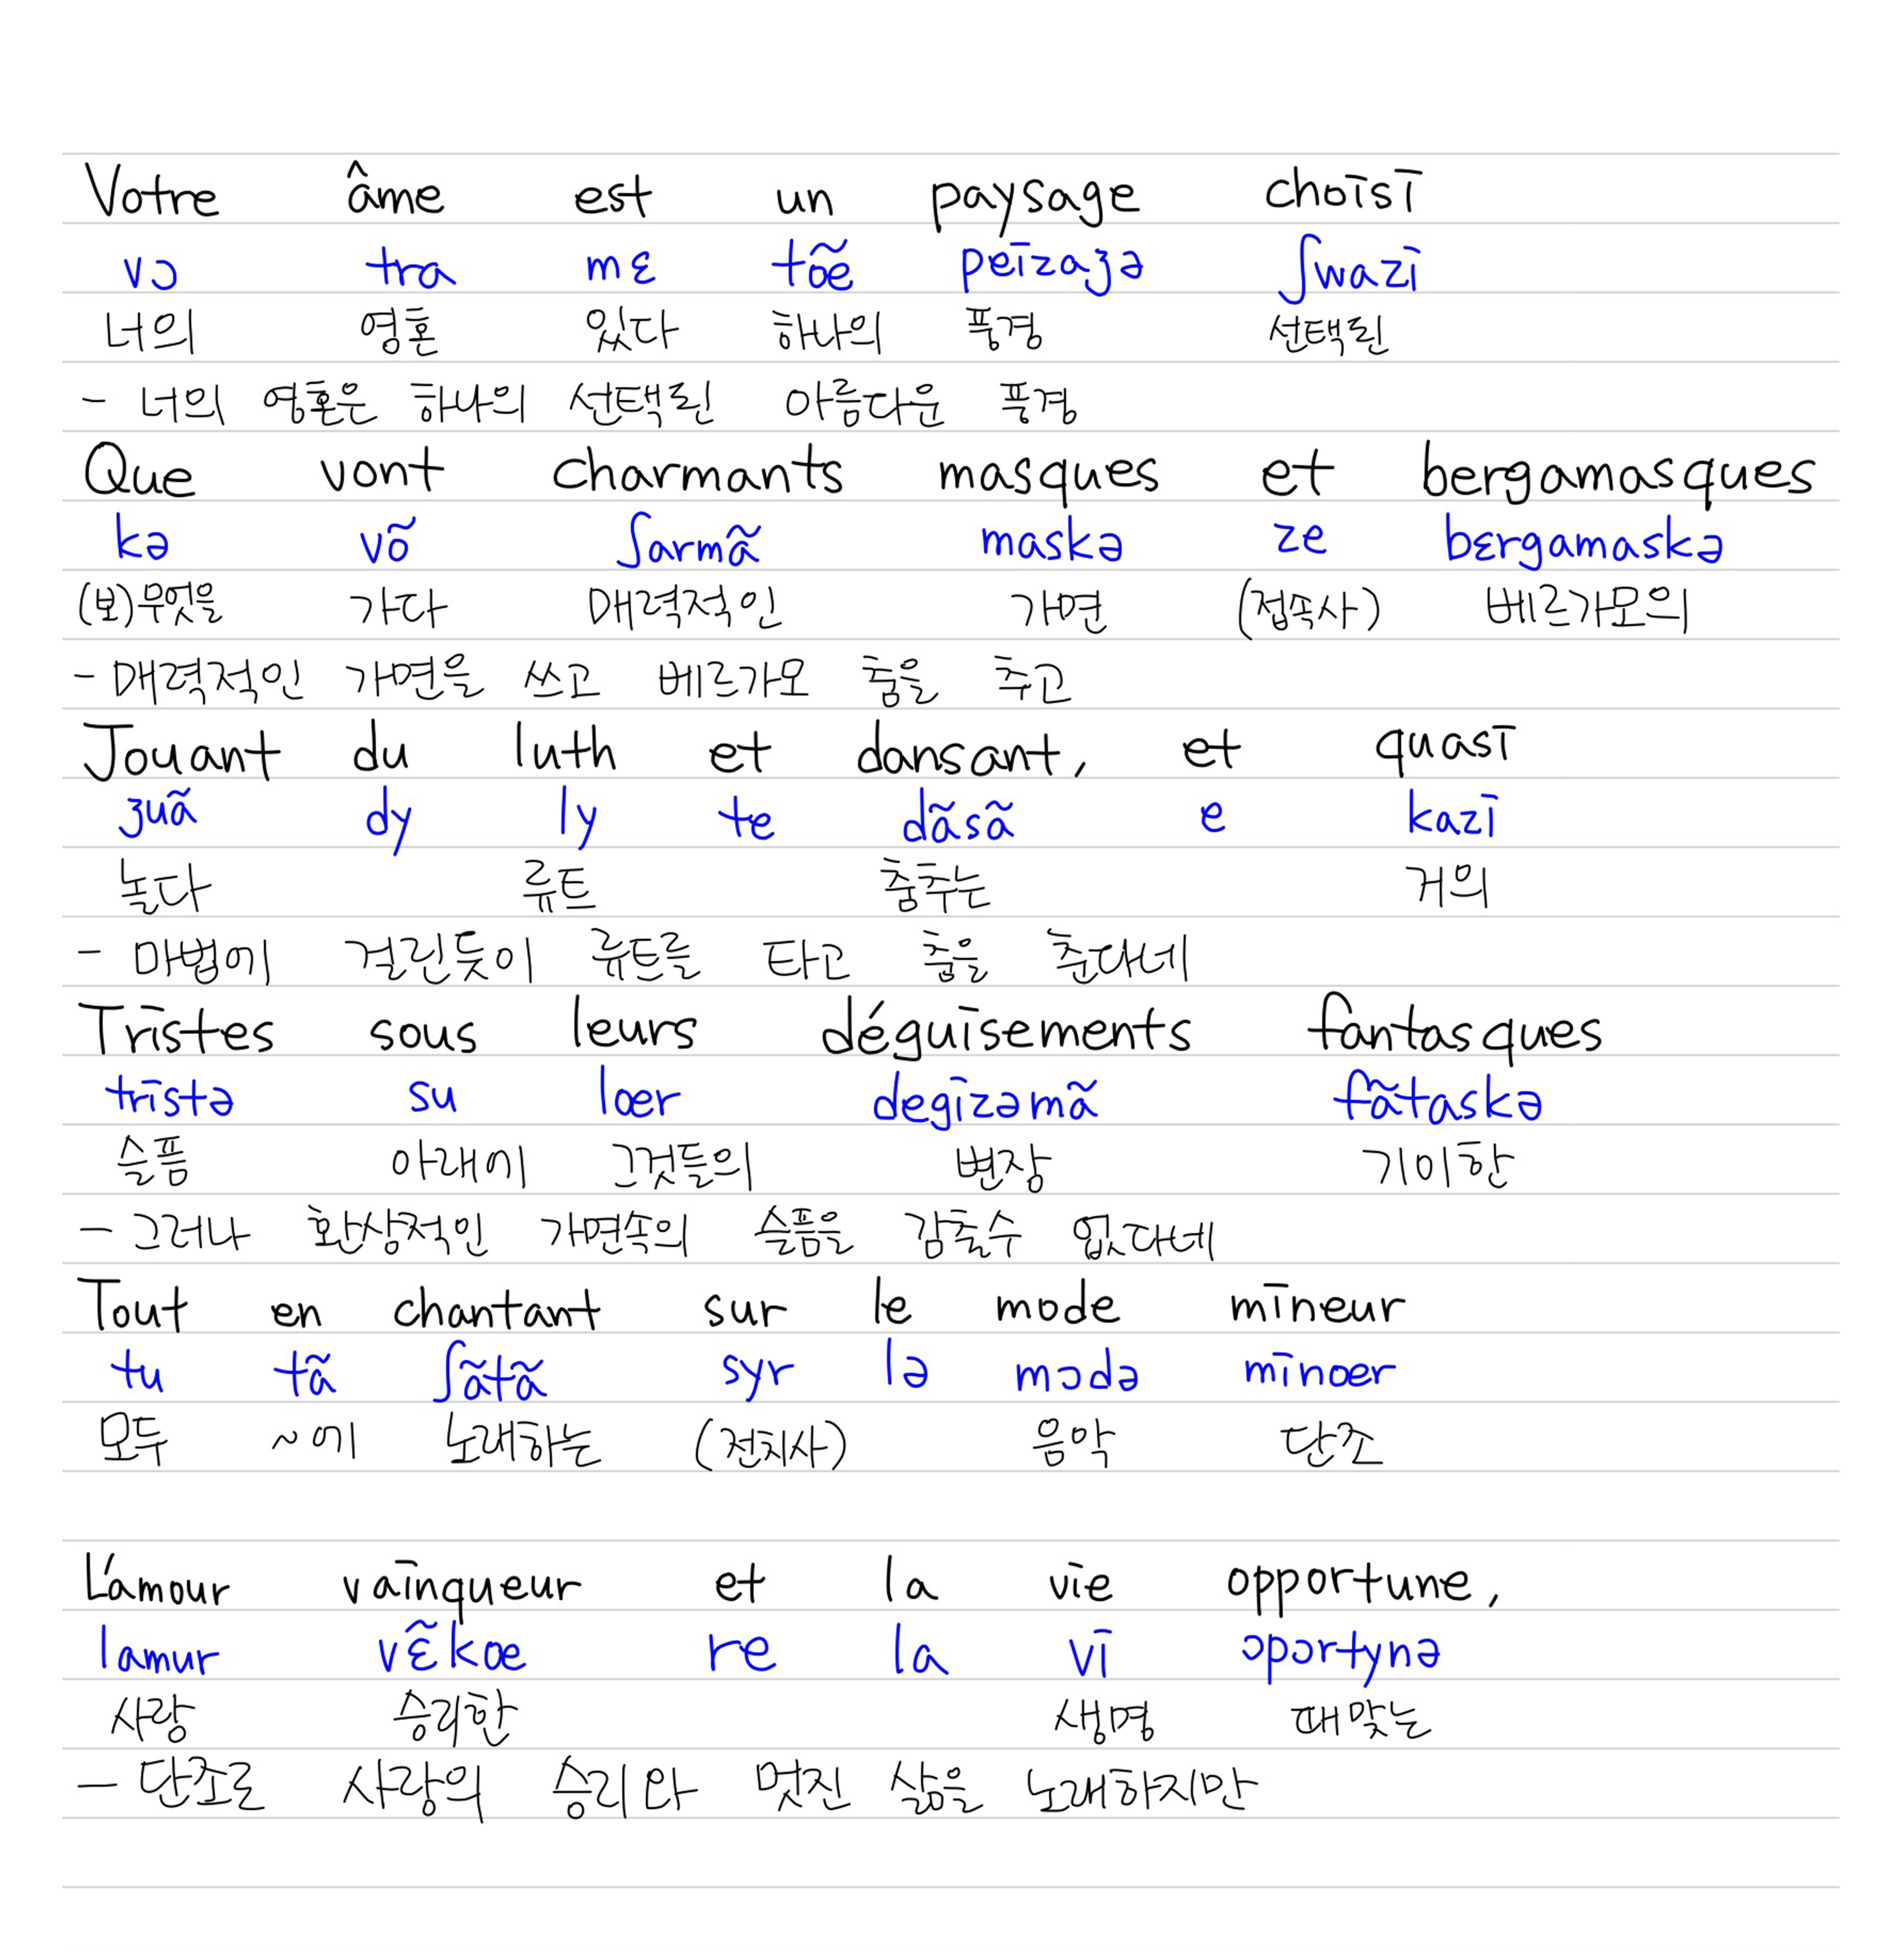 Votre âme est un paysage choisi
vɔ trɑ mɛ tœ̃ peizaʒə ʃwazi
너의 영혼 있다 하나의 풍경 선택된
- 너의 영혼은 하나의 선택된 아름다운 풍경
Que vont charmants masques et bergamasques
kə võ ʃarmɑ̃ maskə ze bɛrgamaskə
(보)무엇을 가다 매력적인 가면 (접속사) 베르가모의
- 매력적인 가면을 쓰고 베르가모 춤을 추고
Jouant du luth et dansant, et quasi
ʒuɑ̃ dy ly te dɑ̃sɑ̃ e kazi
놀다 류트 춤추는 거의
- 마법에 걸린듯이 류트를 타고 춤을 춘다네
Tristes sous leurs déguisements fantasques
tristə su lœr degizəmɑ̃ fɑ̃taskə
슬픔 아래에 그것들의 변장 기이한
- 그러나 환상적인 가면속의 슬픔을 감출수 없다네
Tout en chantant sur le mode mineur
tu tɑ̃ ʃɑ̃tɑ̃ syr lə mɔdə minœr
모두 ~에 노래하는 (전치사) 음악 단조
L'amour vainqueur et la vie opportune,
lamur vɛ̃kœ re la vi ɔpɔrtynə
사랑 승리한 생명 때맞는
- 단조로 사랑의 승리와 멋진 삶을 노래하지만